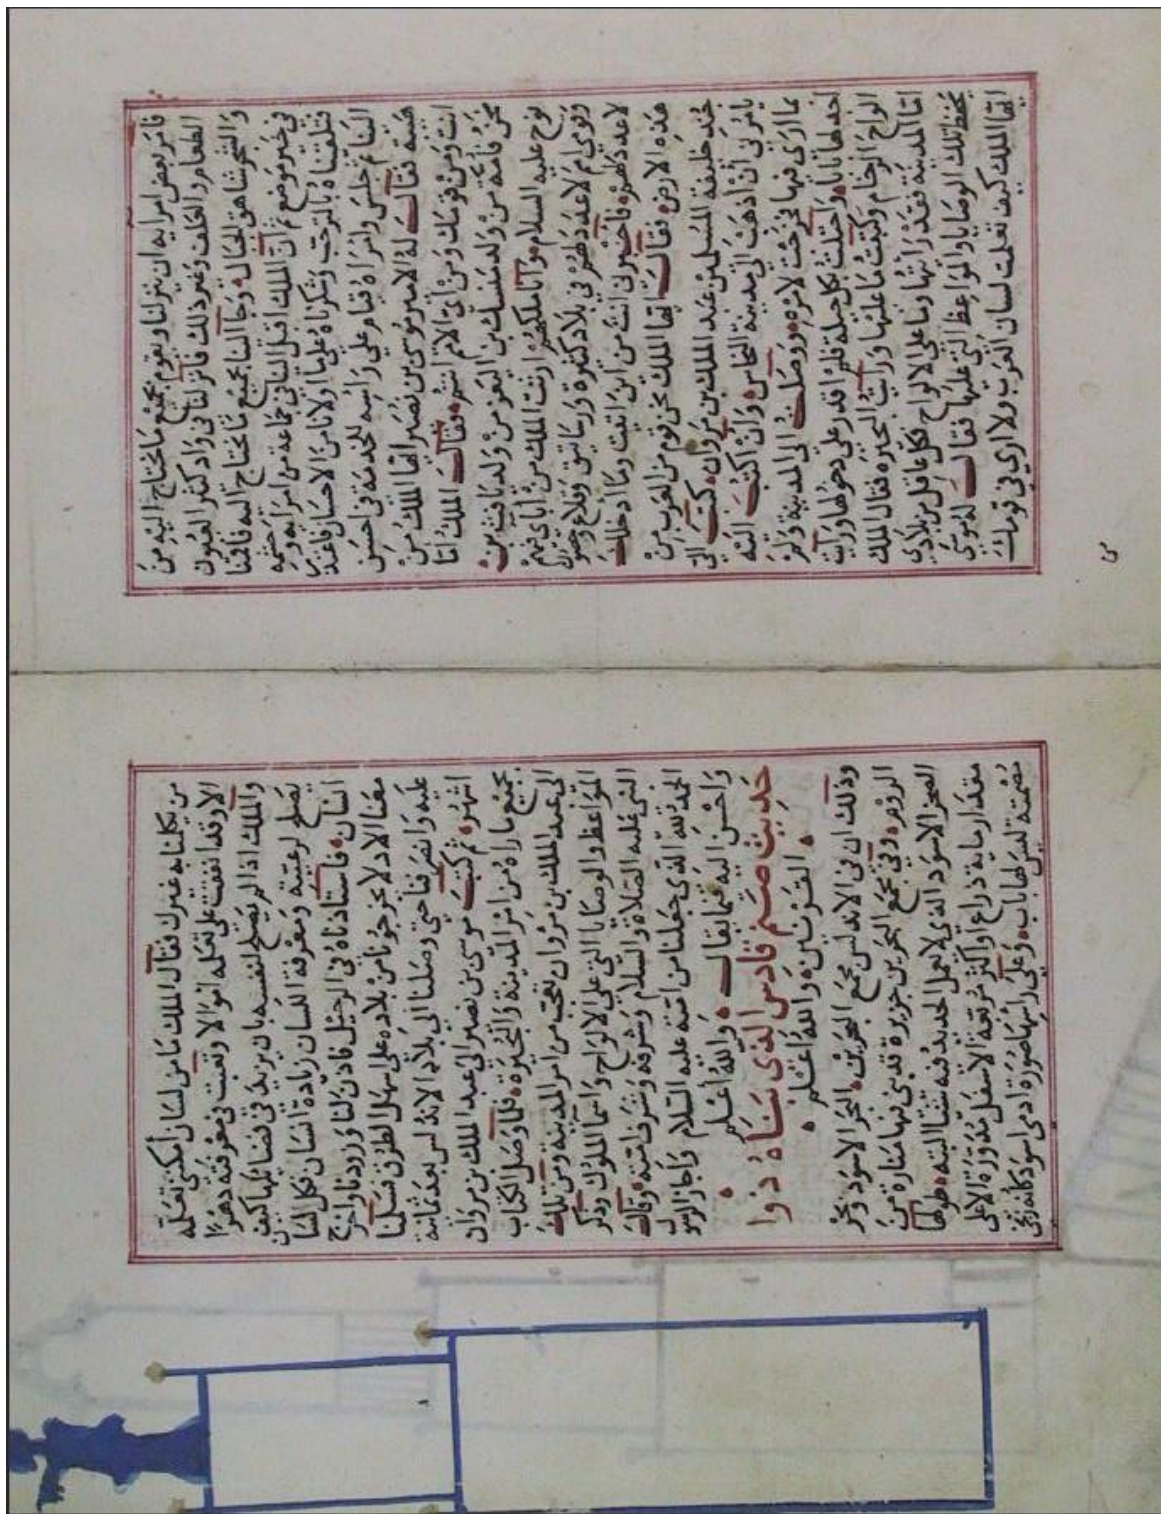 فامر بعض امرايه ان ينزلنا ويقوم بجميع ما نحتاج اليه من
الطعام والعلف وغير ذلك فانزلنا في واد كثير العيون
والشجر شاهق الجبال وجا الينا بجميع ما نحتاج اليه فاقمنا
في خير موضع ثم ان الملك اقبل الينا في جماعة من امرايه وحشمه
فتلقيناه بالترحب وشكرناه على ما اولانا من الاحسان
الينا ثم جلس وامراه قيام على راسه للخدمة في احسن
هيبة فقال له الامير موسى بن نصير ايها الملك من
انت ومن قومك ومن اي الامم انتم فقال الملك اما
نحن فامة من ولد منسك بن النغر من ولد يافث بن
نوح عليه السلام وانا ملكهم ورثت الملك من اباي فيهم
وقومي امم لا عدد لهم في بلاد كثيرة ورساتيق وقلاع وحصون
لا عدد لهم فاخبرني انت من اين اتيت وما ادخلك
هذه الارض فقال ايها الملك نحن قوم من العرب من
جند خليفة المسلمين عبد الملك بن مروان كتب الي
يامرني ان اذهب الى مدينة النحاس وان اكتب اليه
بما ارى فيها فخرجت لامره ووصلت الى المدينة ولم
اجد لها بابا واحتلت بكل حيلة فلم اقدر على دخولها ورايت
الواح الرخام وكتبت ما عليها ورايت البحيرة فقال الملك
اما المدينة فقد رايتها وما على الالواح فكل عاقل من بلادي
يحفظ تلك الوصايا والمواعظ التي عليها فقال له موسى
ايها الملك كيف تعلمت لسان العرب ولا ارى في قومك
من يكلمنا به غيرك فقال الملك ما من لسان امكنني تعلمه
الا وقد انفقت على تعلمه اموالا وتعبت في معرفته دهرا
والملك اذا لم يصلح لنفسه بان يزيد في فضايلها كيف
يصلح لرعيته ومعرفة اللسان زيادة انسان فكل لسان
انسان فاستاذناه في الرحيل فاذن لنا وزودنا واخرج
معنا الادلا يخرجونا من بلاده على اسهل الطرق فسلمنا
عليه وانصرفنا حتى وصلنا الى بلاد الاندلس بعد ثمانية
اشهر ثم كتب موسى بن نصير الى عبد الملك بن مروان
بجميع ما راه من امر المدينة والبحيرة فلما وصل الكتاب
الى عبد الملك بن مروان تعجب من امر المدينة ومن تلك
المواعظ والوصايا التي على الالواح واسما الملوك وذكر
النبي عليه الصلاة والسلام وشرفه وشرف امته وقال
الحمد لله الذي جعلنا من امته عليه السلام واجاز الرسول
واحسن اليه فيما يقال والله اعلم
حديث صنم قادس الذي بناه ذوا
القرنين والله اعلم
وذلك ان في الاندلس مجمع البحرين البحر الاسود وبحر
الروم وفي مجمع البحرين جزيرة قد بني فيها منارة من
الصخر الاسود الذي لا يعمل الحديد فيه شيا البته طولها
مقدار ماية ذراع او اكثر مربعة الاسفل مدورة الاعلى
مصمتة ليس لها باب وعلى راسها صورة ادمي اسود كانه زنجي